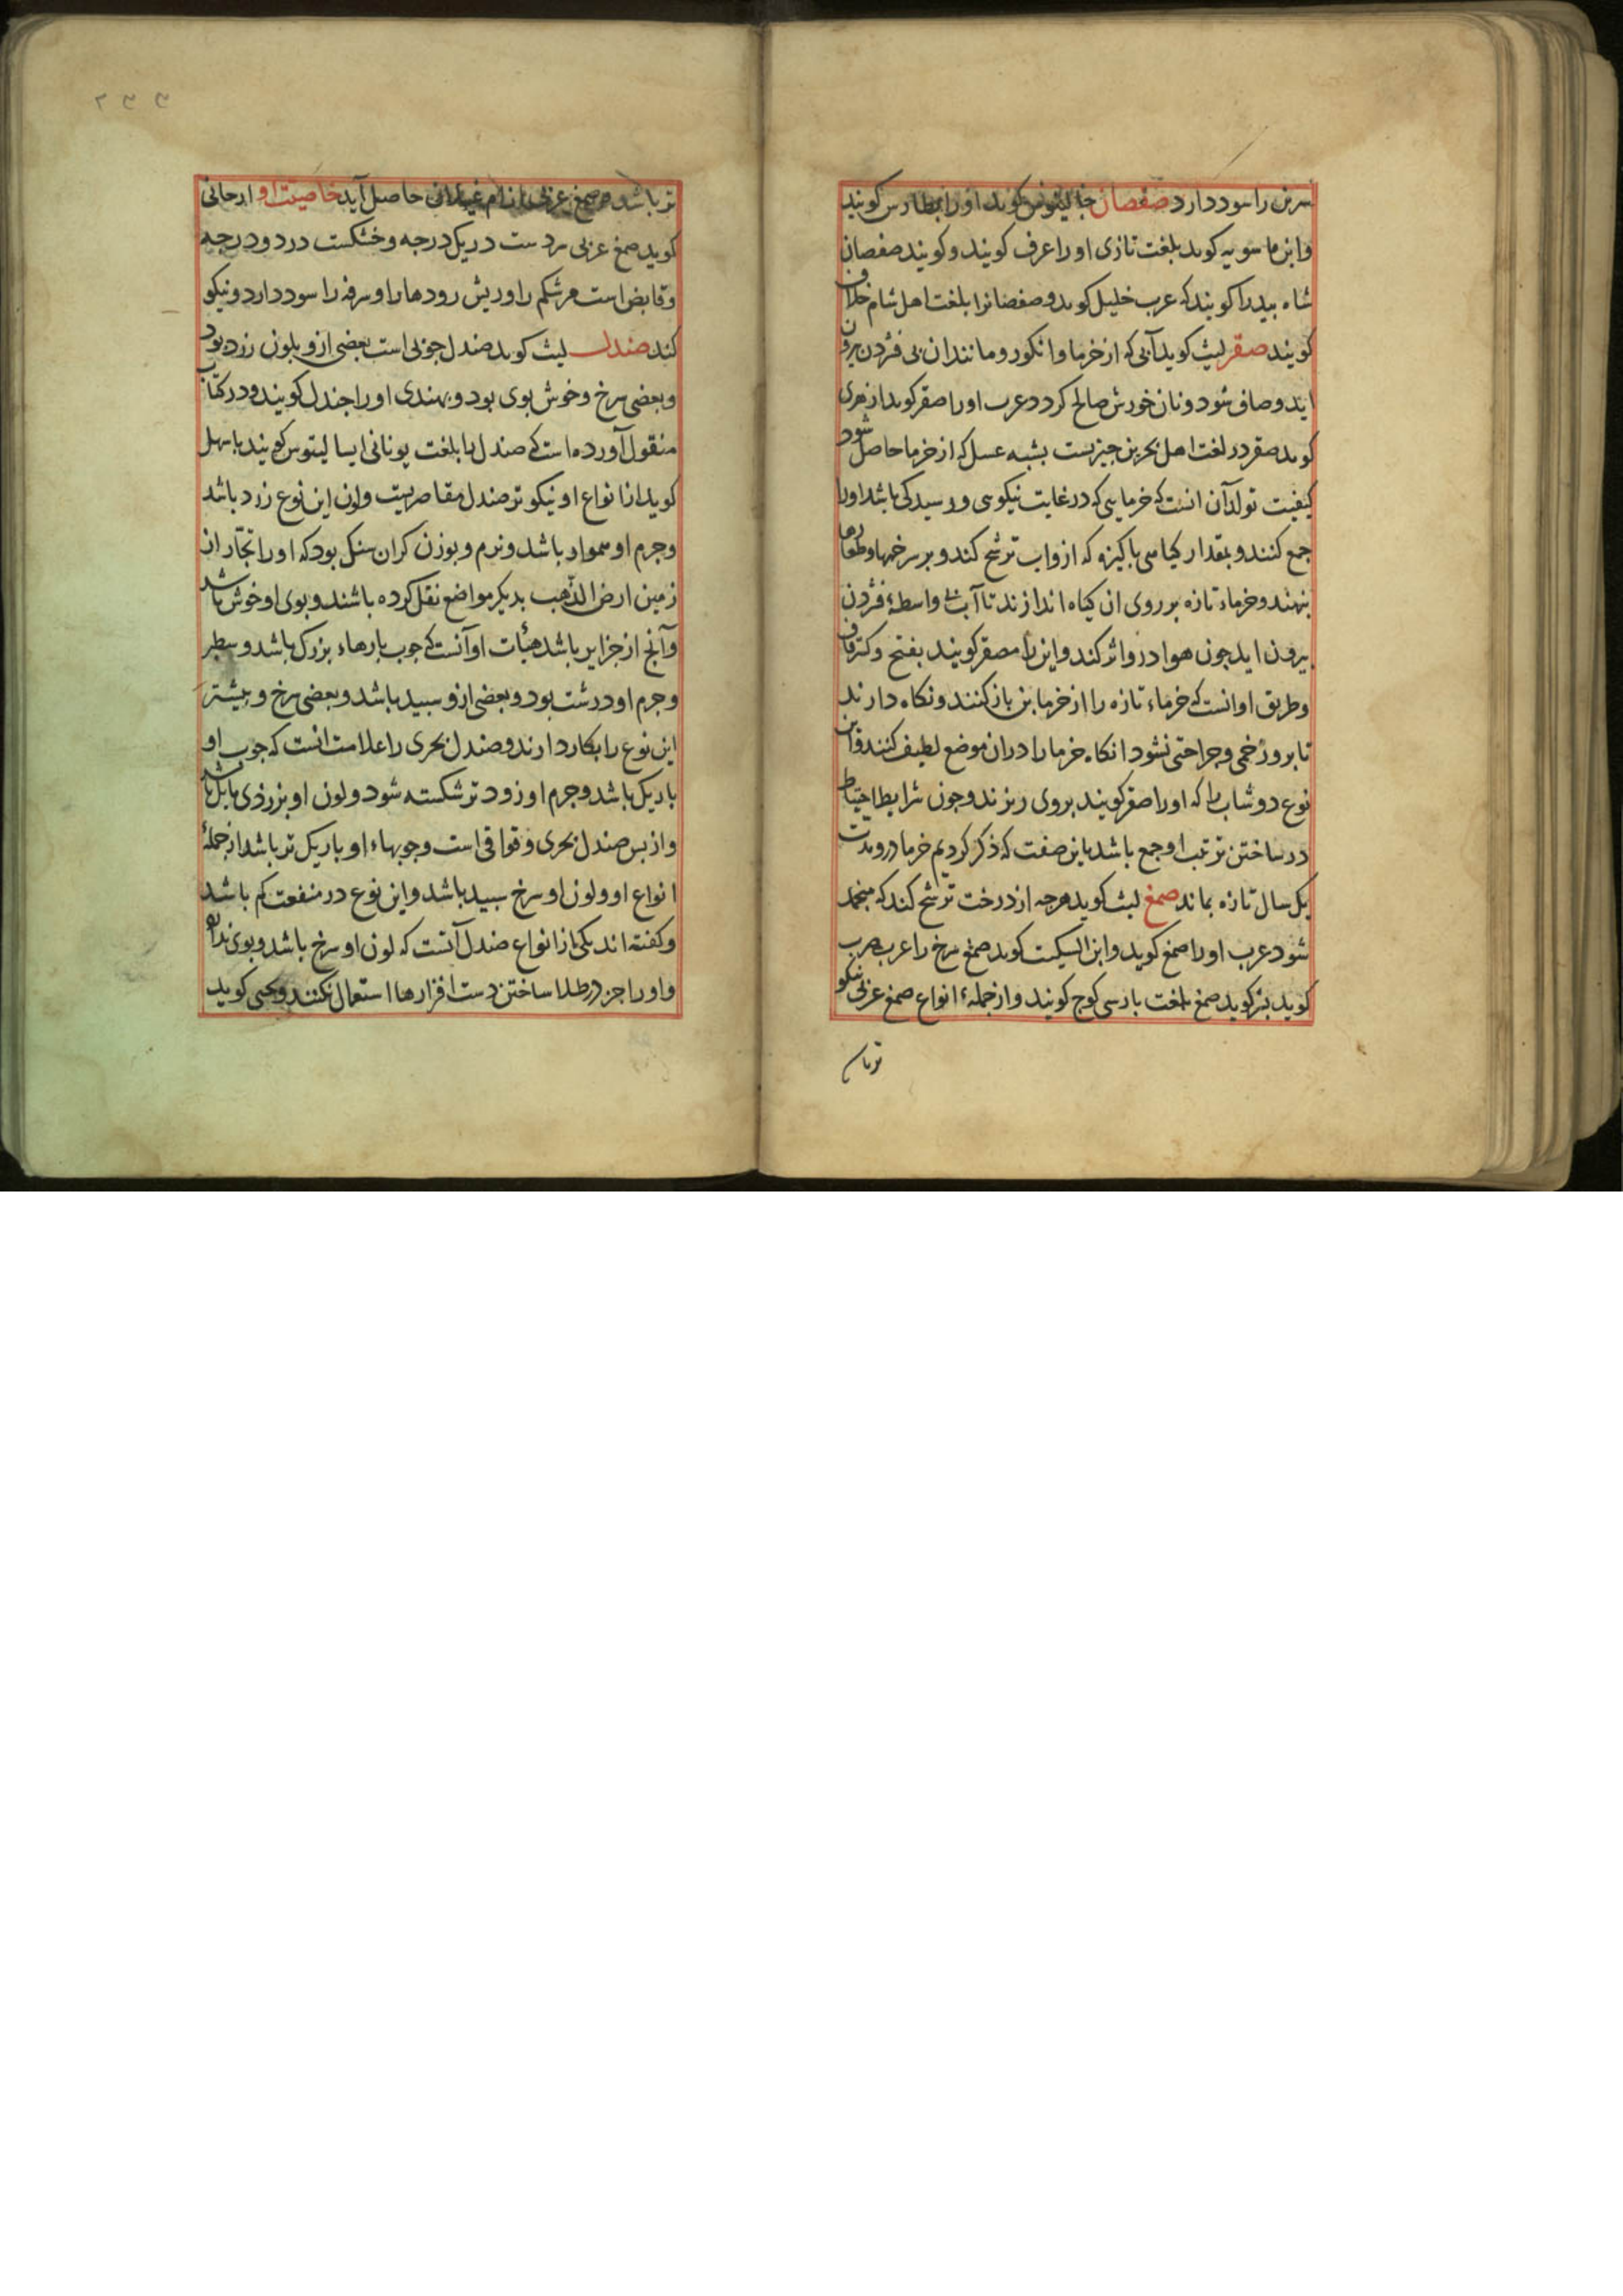 سرین را سود دارد صفصان جالینوس کوید اورا ایطارس کویند
وابن ماسویه کوید بلغت تازی اورا عرف کویند و کویند صفصان
شاه بید را کویند که عرب خلیل کوید و صفصانرا بلغت اهل شام خلاف
کویند صقر لیث کوید آبی که از خرما وانکور و مانند ان بی فژدن بیرون
اید و صافی شود و نان خورش صالح کردد عرب اورا صقر کوید ازهری
کوید صقر در لغت اهل بحرین چیزیست بشبه عسل که از خرما حاصل شود
کیفیت تولد آن انست که خرمایی که در غایت نیکوی و رسیدکی باشد اورا
جمع کنند و بمقدار کیاهی باکیزه که ازو اب ترشح کند و بر سر خمها و
بنهند و خرماء تازه بر روی ان کیاه اندازند تا آب بی واسطهٔ فژدن
بیرون اید جون هوا درو اثر کند و این را مصقر کویند بفتح و کسر قاف
وطریق او انست که خرماء تازه را از خرمابن باز کنند و نکاه دارند
تا برو زخمی و جراحتی نشود انکاه خرما را دران موضع لطیف کنند و این
نوع دوشاب را که اورا صقر کویند بروی ریزند و جون شرایط احتیاط
در ساختن ترتیب او جمع باشد باین صفت که ذکر کردیم خرما درو مدت
یکسال تازه بماند صمغ لیث کوید هرجه از درخت ترشح کند که منجمد
شود عرب اورا صمغ کوید وابن السیکت کوید صمغ سرخ را عرب صرب
کوید بشر کوید صمغ بلغت بارسی کوج کویند و از جملهٔ انواع صمغ عربی نیکو
ترباشد
۲۳۳
ترباشد و صمغ عربی از ام غیلان حاصل آید خاصیت او ارجانی
کوید صمغ عربی سردست در یکدرجه و خشکست در دو درجه
و قابض است مر شکم را و ریش رودها را و سرفه را سود دارد و نیکو
کند صندل لیث کوید صندل جوبی است بعضی ازو بلون زرد بود
و بعضی سرخ و خوش بوی بود و بهندی اورا جندل کویند و در کتاب
منقول آورده است که صندل را بلغت یونانی ایسالیتوس کویند باسهل
کوید از انواع او نیکوتر صندل مقاصریست و لون این نوع زرد باشد
و جرم او هموار باشد و نرم و بوزن کران سنک بود که اورا تجار از
زمین ارض الذهب بدیکر مواضع نقل کرده باشند و بوی او خوش باشد
و آنج از جزایر باشد هیأت او آنست که جوب بارهاء بزرک باشد و سطبر
و جرم او درشت بود و بعضی ازو سبید باشد و بعضی سرخ و بیشتر
این نوع را بکار دارند و صندل بحری را علامت انست که جوب او
باریک باشد و جرم او زودتر شکسته شود و لون او بزردی مایل باشد
و از بس صندل بحری وقواقی است و جوبهاء او باریک تر باشد از جملهٔ
انواع او و لون او سرخ سبید باشد و این نوع در منفعت کم باشد
و کفته اند یکی از انواع صندل آنست که لون او سرخ باشد و بوی ندارد
و اورا جز در طلا ساختن دست افزارها استعمال نکنند و یحیی کوید